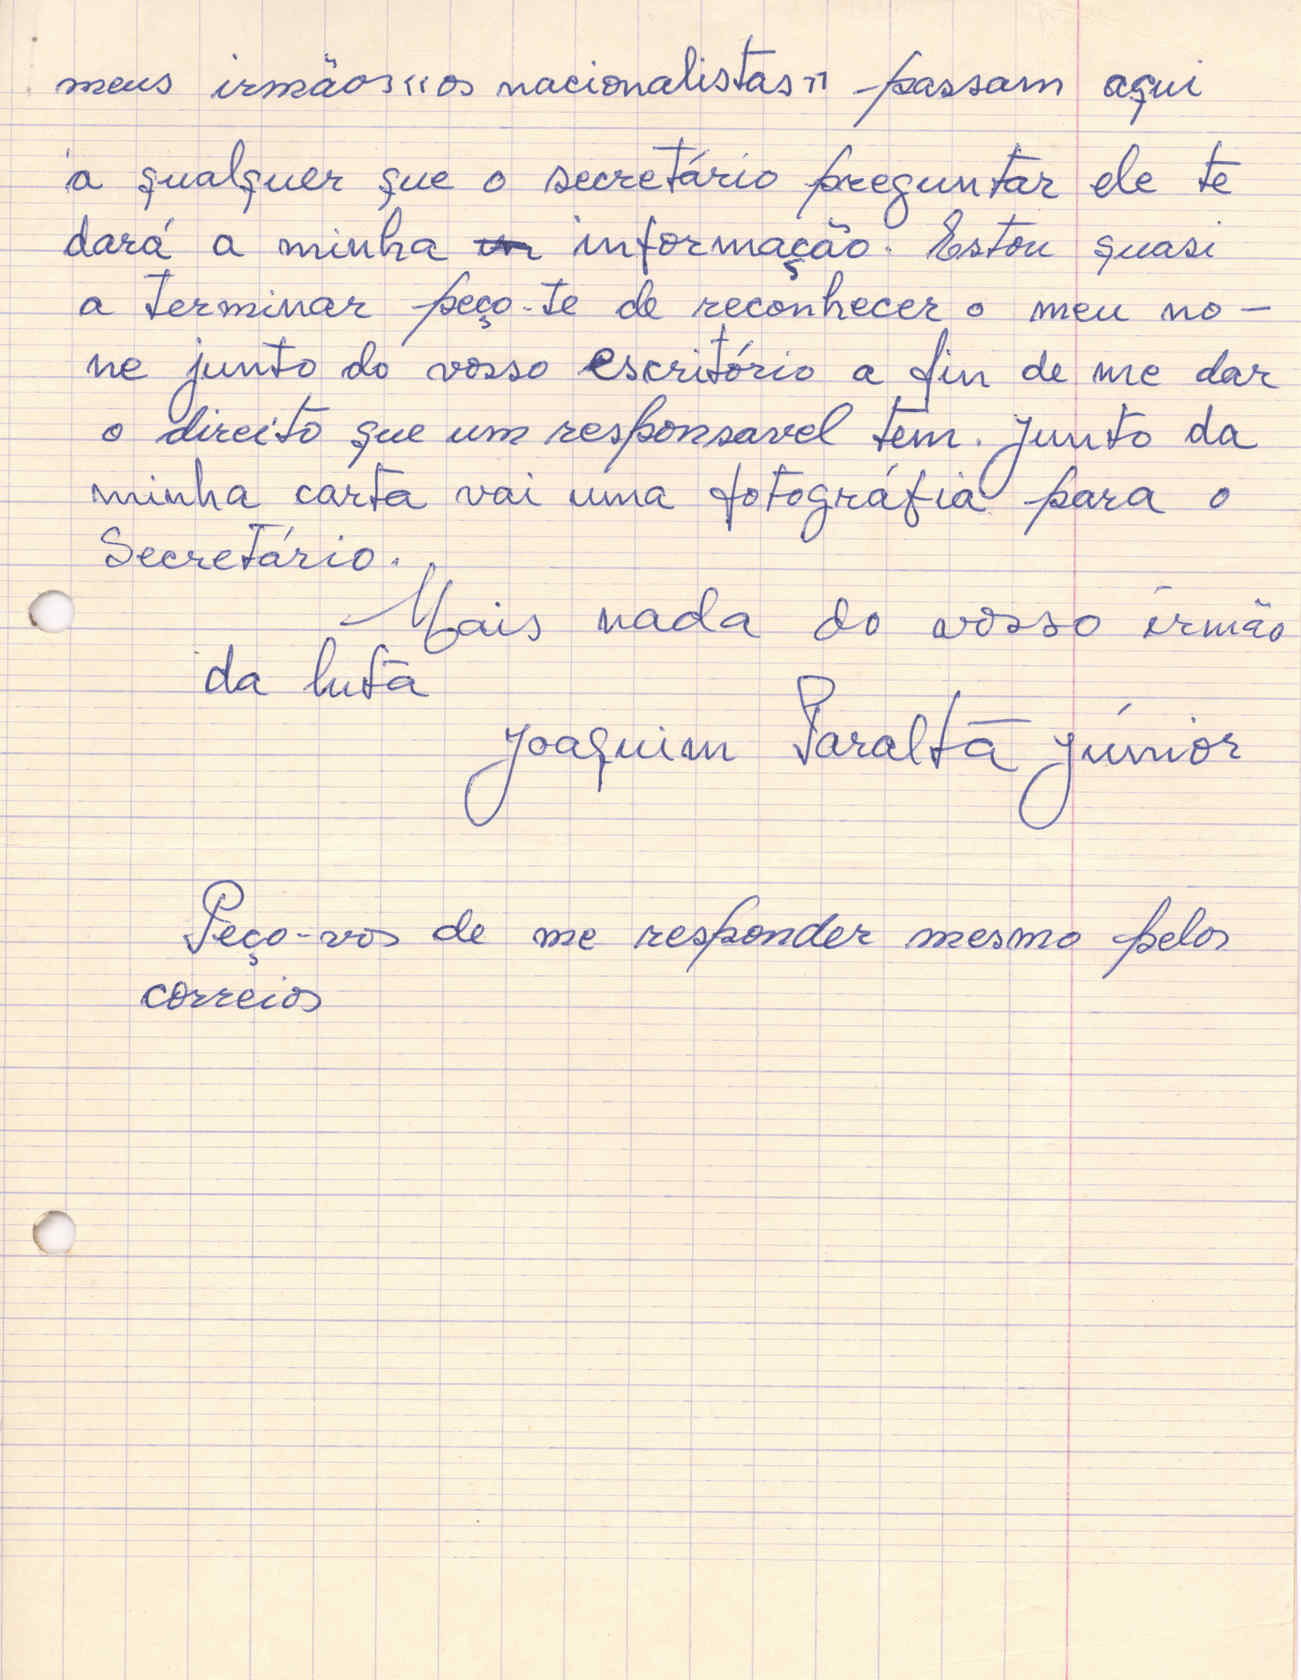 meus irmãos "os nacionalistas" passam aqui
a qualquer que o secretário preguntar ele te
dará a minha informação. Estou quasi
a terminar peço-te de reconhecer o meu no-
ne junto do vosso escritório a fin de me dar
o direito que um responsavel tem. Junto da
minha carta vai uma fotográfia para o
Secretário.
Mais nada do vosso irmão
da luta
Joaquim Paralta Júnior
Peço-vos de me responder mesmo pelos
correios